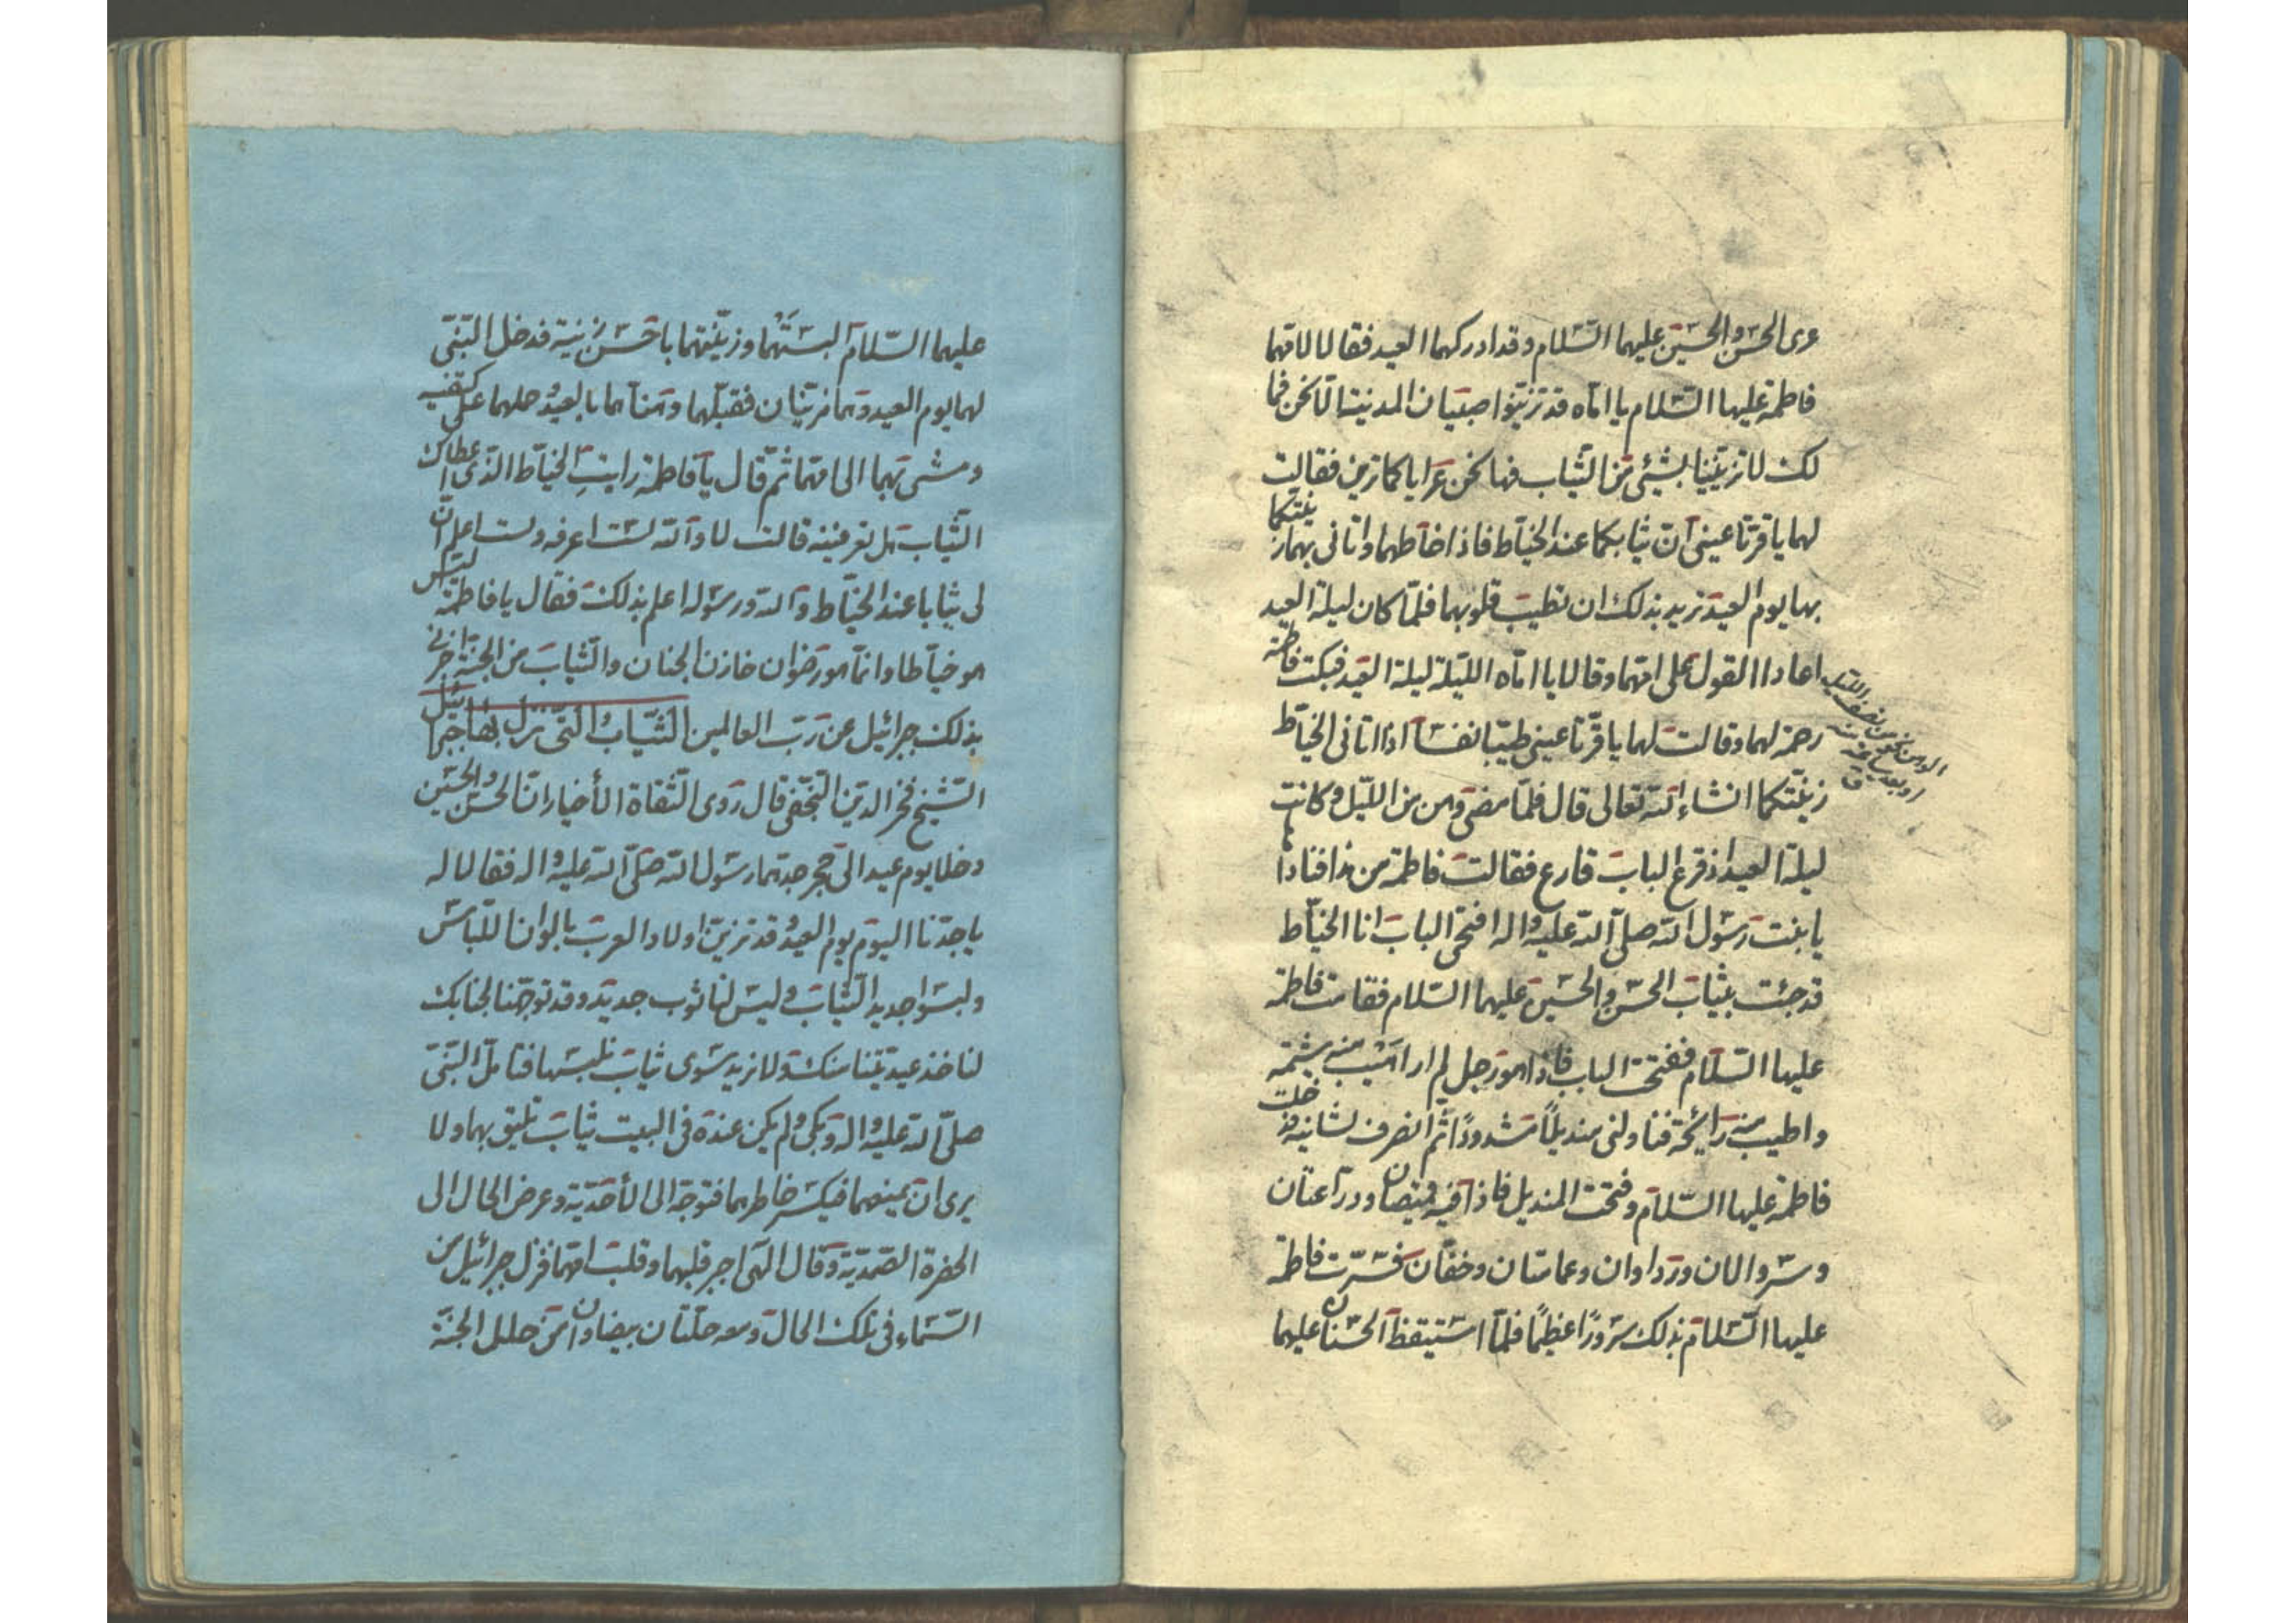 عرى الحسن والحسين عليهما السّلام وقد ادركهما العيد فقالا لامّهما
فاطمة عليها السّلام يا امّاه قد تزيّنوا صبيان المدينة الّا نحن فما
لك لا تزيّنينا بشيئ من الثّياب فها نحن عرايا كما ترين فقالت
لهما يا قرّتا عينى انّ ثيابكما عند الخيّاط فاذا خاطهما واتانى بهما زيّنتكما
بها يوم العيد تريد بذلك ان تطيب قلوبهما فلمّا كان ليلة العيد
اعادا القول على امّهما وقالا يا امّاه اللّيلة ليلة العيد فبكت فاطمة
رحمة لهما وقالت لهما يا قرّتا عينى طيّبا نفسا اذا اتانى الخيّاط
زيّنتكما انشاء الله تعالى قال فلمّا مضى وهن من اللّيل وكانت
ليلة العيد اذ قرع الباب قارع فقالت فاطمة من هذا فنادا
يا بنت رسول الله صلّى الله عليه واله افتحى الباب انا الخيّاط
قد جئت بثياب الحسن والحسين عليهما السّلام فقامت فاطمة
عليها السّلام ففتحت الباب فاذا هو رجل لم ار اهيب منه شيمة
واطيب منه رائحة فناولنى منديلاً مشدودًا ثمّ انصرف لشانه فدخلت
فاطمة عليها السّلام وفتحت المنديل فاذا فيه قميصان ودرّاعتان
وسروالان ورداوان وعمامتان وخفّان فسرّت فاطمة
عليها السّلام بذلك سرورًا عظيمًا فلمّا استيقظ الحسنان عليهما
الوهن نحو من نصف اللّيل
او بعد ساعة منه
ق
عليهما السّلام البستهما وزيّنتهما باحسن زينة فدخل النّبىّ
لهما يوم العيد وهما مزيّنان فقبّلهما وهنّاهما بالعيد وحملهما على كتفيه
ومشى بهما الى امّهما ثمّ قال يا فاطمة رايتِ الخيّاط الّذى اعطاك
الثّياب هل تعرفينه قالت لا والله لست اعرفه ولست اعلم انّ
لى ثيابا عند الخيّاط والله ورسوله اعلم بذلك فقال يا فاطمة ليس
هو خيّاطا وانّما هو رضوان خازن الجنان والثّياب من الجنّة اخبرنى
بذلك جبرائيل عن ربّ العالمين الثّياب الّتى نزل بها جبرئيل
الشّيخ فخر الدّين النّجفى قال روى الثّقاة الأخيار انّ الحسن والحسين
دخلا يوم عيد الى حجر جدّهما رسول الله صلّى الله عليه واله فقالا له
يا جدّنا اليوم يوم العيد وقد تزيّن اولاد العرب بالوان اللّباس
ولبسوا جديد الثّياب وليس لنا ثوب جديد وقد توجّهنا لجنابك
لناخذ عيديّتنا منك ولا نريد سوى ثياب نلبسها فتامّل النّبىّ
صلّى الله عليه واله وبكى ولم يكن عنده فى البيت ثياب تليق بهما ولا
يرى ان يمنعهما فيكسر خاطرهما فتوجّه الى الأحديّة وعرض الحال الى
الحضرة الصّمديّة وقال الهى اجبر قلبهما وقلب امّهما فنزل جبرائيل من
السّماء فى تلك الحال ومعه حلّتان بيضاوان من حلل الجنّة